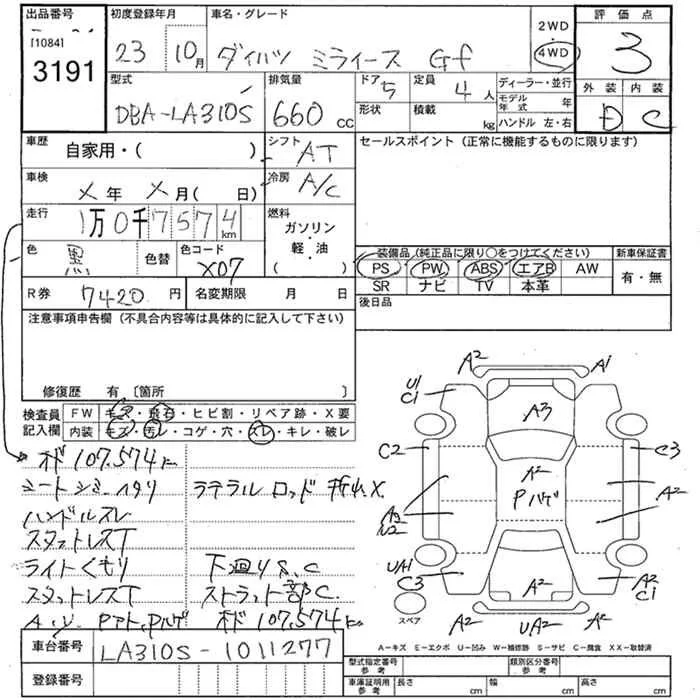 出品番号
[1084]
3191
初度登録年月
23 10月
車名・グレード
ダイハツ ミライース Gf
2WD
・
4WD
評価点
3
外装 内装
D C
型式
DBA-LA310S
排気量
660 cc
ドア
5
定員
4 人
形状
積載
kg
ディーラー・並行
モデル年式 年
ハンドル 左・右
車歴
自家用・( )
シフト
AT
セールスポイント (正常に機能するものに限ります)
車検
X 年 X 月( 日)
冷房
A/C
走行
1万0千7574km
燃料
ガソリン
・
軽・油
( )
色
黒
色替
色コード
X07
装備品 (純正品に限り〇をつけてください)
PS PW ABS エアB AW
SR ナビ TV 本革
新車保証書
有・無
R券 7420 円
名変期限 月 日
後日品
注意事項申告欄 (不具合内容等は具体的に記入して下さい)
修復歴 有 〔箇所 〕
検査員記入欄
FW キズ・飛石・ヒビ割・リペア跡・X要
内装 キズ・汚レ・コゲ・穴・スレ・キレ・破レ
オド 107,574
シート シミ・ヘタリ
ラテラル ロッド 折れX
ハンドルスレ
スタットレスT
ライトくもり
下廻り S、C
スタットレスT
ストラット部C
オド 107,574
車台番号
LA310S-1011277
登録番号
A2 A1
U1
C1
A3
C2 C3
A2
Pハゲ
A2
U2
UA1
C3
A2
A2
C1
スペア
A2 UA2 A2
A-キズ E-エクボ U-凹み W-補修跡 S-サビ C-腐食 XX-取替済
型式指定番号 参考
類別区分番号 参考
車庫証明用 参考
長さ cm
幅 cm
高さ cm